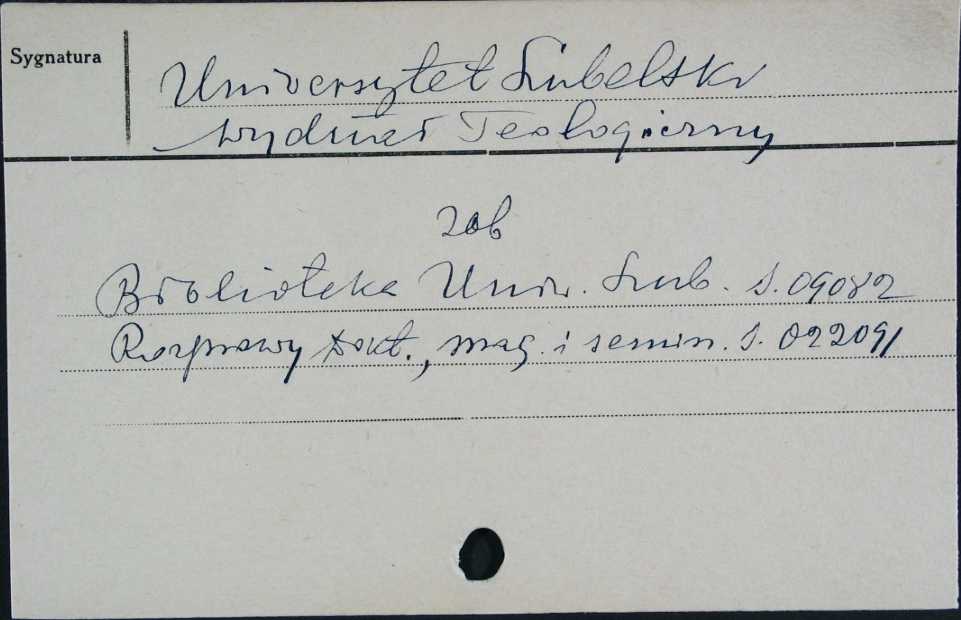 Sygnatura
Uniwersytet Lubelski
Wydział Teologiczny
zob
Biblioteka Uniw. Lub. S. 09082
Rozprawy dokt., mag. i semin. S. 022091